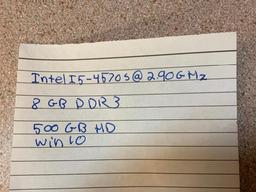 Intel I5-4570S@2.90GHz
8 GB DDR3
500 GB HD
Win 10